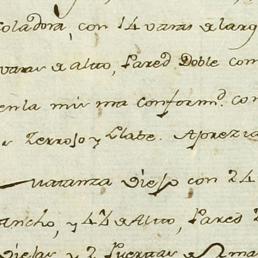 coladora, con 14 varas de larg
varas de alto, Pared Doble com
en la mis ma conformd. con
Zerrojo y Llabe. Aprezia
Matanza Viejo con 24
Ancho, y 4½ de Alto, Pared
Viejas, y 2 Puertas de